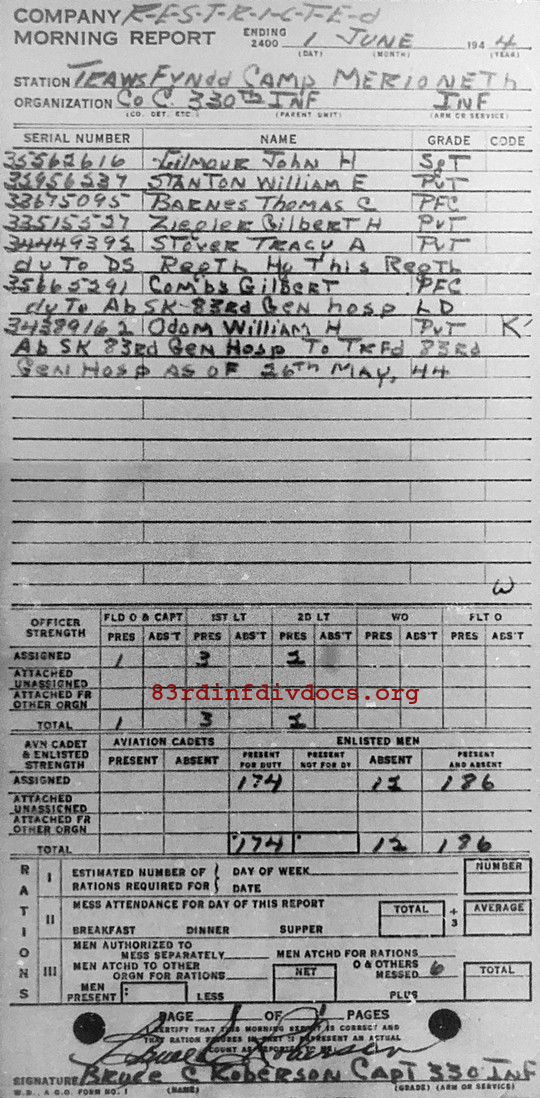 COMPANY R-E-S-T-R-I-C-T-E-d
MORNING REPORT ENDING 2400 1 JUNE 194 4
(DAY) (MONTH) (YEAR)
STATION TRAWSFYNDD CAMP MERIONETH
ORGANIZATION CO C. 330TH INF INF
(CO. DET. ETC.) (PARENT UNIT) (ARM OR SERVICE)
SERIAL NUMBER NAME GRADE CODE
35562616 GILMOUR JOHN H SGT
35956237 STANTON WILLIAM E PVT
33675095 BARNES THOMAS C PFC
33515527 ZIEGLER GILBERT H PVT
34449392 STOVER TRACY A PVT
dy To DS REGTL HQ THIS REGTL
35665291 COMBS GILBERT PFC
dy To Ab SK 83RD GEN HOSP LD
34389162 ODOM WILLIAM H PVT K
Ab SK 83RD GEN HOSP TO TRFd 83RD
GEN HOSP AS OF 26TH MAY, 44
W
OFFICER STRENGTH FLD O & CAPT 1ST LT 2D LT WO FLT O
PRES ABS'T PRES ABS'T PRES ABS'T PRES ABS'T PRES ABS'T
ASSIGNED 1 3
ATTACHED UNASSIGNED
ATTACHED FR OTHER ORGN
83rdinfdivdocs.org
TOTAL 1 3
AVN CADET & ENLISTED STRENGTH AVIATION CADETS ENLISTED MEN
PRESENT ABSENT PRESENT FOR DUTY PRESENT NOT FOR DY ABSENT PRESENT AND ABSENT
ASSIGNED 174 12 186
ATTACHED UNASSIGNED
ATTACHED FR OTHER ORGN
TOTAL 174 12 186
RATIONS
I ESTIMATED NUMBER OF RATIONS REQUIRED FOR { DAY OF WEEK DATE NUMBER
II MESS ATTENDANCE FOR DAY OF THIS REPORT TOTAL ÷ 3 AVERAGE
BREAKFAST DINNER SUPPER
III MEN AUTHORIZED TO MESS SEPARATELY MEN ATCHD FOR RATIONS
MEN ATCHD TO OTHER ORGN FOR RATIONS NET O & OTHERS MESSED 6 TOTAL
MEN PRESENT : LESS PLUS
PAGE 1 OF 1 PAGES
I CERTIFY THAT THIS MORNING REPORT IS CORRECT AND
THAT RATION FIGURES IN PART II REPRESENT AN ACTUAL
COUNT AS REPORTED TO ME
Bruce C Roberson
SIGNATURE BRUCE C ROBERSON CAPT 330 INF
W.D., A.G.O. FORM NO. 1 (NAME) (GRADE) (ARM OR SERVICE)